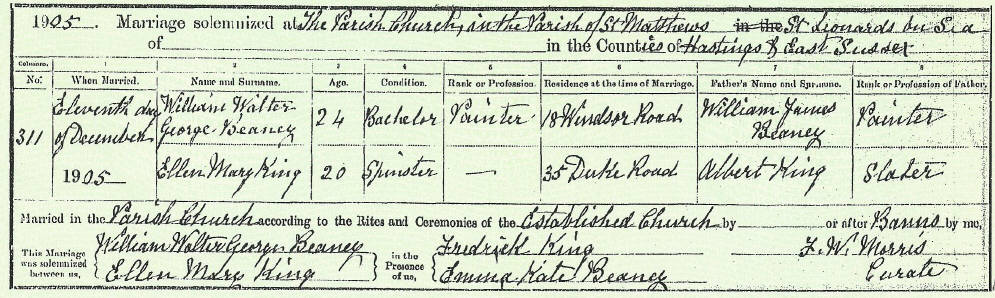 1905. Marriage solemnized at The Parish Church, in the Parish of St Matthews in the St Leonards on Sea
of in the Counties of Hastings & East Sussex
Columns. 1 2 3 4 5 6 7 8
No. When Married. Name and Surname. Age. Condition. Rank or Profession. Residence at the time of Marriage. Father's Name and Surname. Rank or Profession of Father.
311 Eleventh day of December 1905 William Walter George Beaney 24 Bachelor Painter 18 Windsor Road William James Beaney Painter
Ellen Mary King 20 Spinster — 35 Duke Road Albert King Slater
Married in the Parish Church according to the Rites and Ceremonies of the Established Church by or after Banns by me,
This Marriage was solemnized between us, William Walter George Beaney in the Presence of us, Fredrick King F. W. Morris
Ellen Mary King Emma Kate Beaney Curate